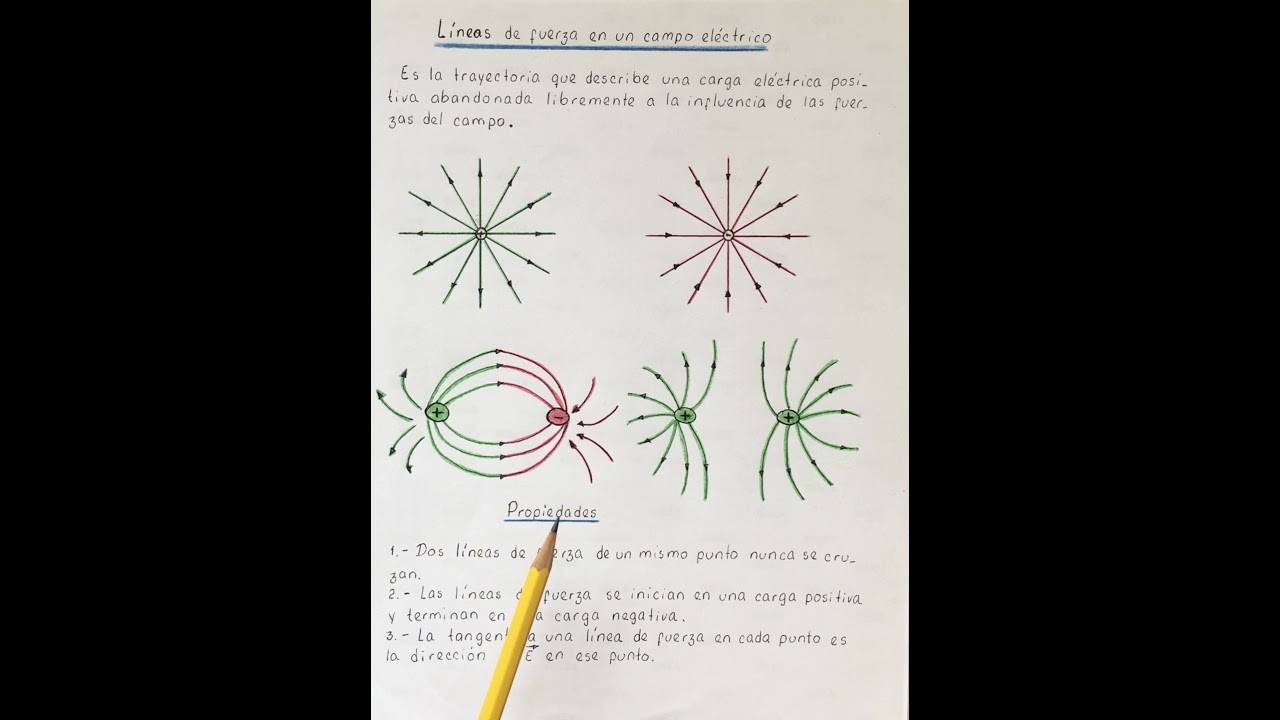 Líneas de fuerza en un campo eléctrico
Es la trayectoria que describe una carga eléctrica posi-
tiva abandonada libremente a la influencia de las fuer-
zas del campo.
+ -
+ - + +
Propiedades
1.- Dos líneas de fuerza de un mismo punto nunca se cru-
zan.
2.- Las líneas fuerza se inician en una carga positiva
y terminan en carga negativa.
3.- La a una línea de fuerza en cada punto es
la dirección E en ese punto.